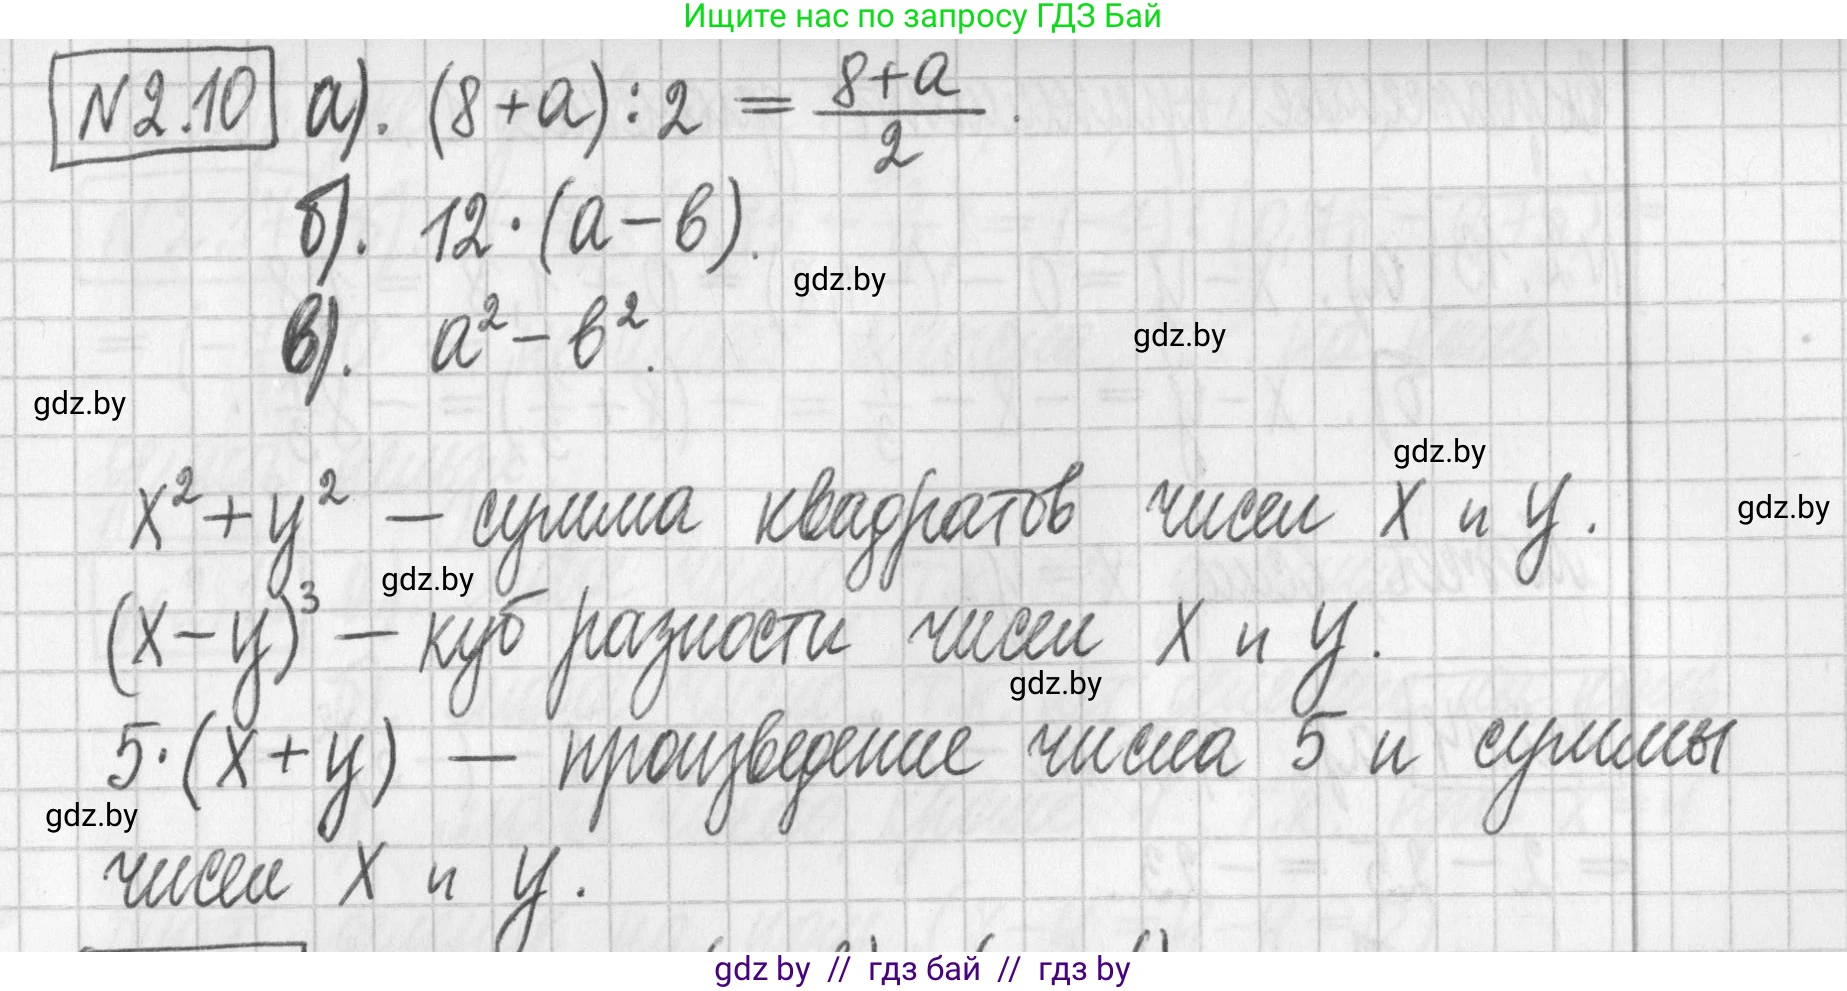 Ищите нас по запросу ГДЗ Бай
N2.10 а). (8+a):2 = \frac{8+a}{2}.
б). 12·(a−в).
gdz.by
в). a²−в².
gdz.by
gdz.by
gdz.by
x²+y² — сумма квадратов чисел x и y.
gdz.by
gdz.by
(x−y)³ — куб разности чисел x и y.
gdz.by
5·(x+y) — произведение числа 5 и суммы
gdz.by
чисел x и y.
gdz by // гдз бай // гдз by